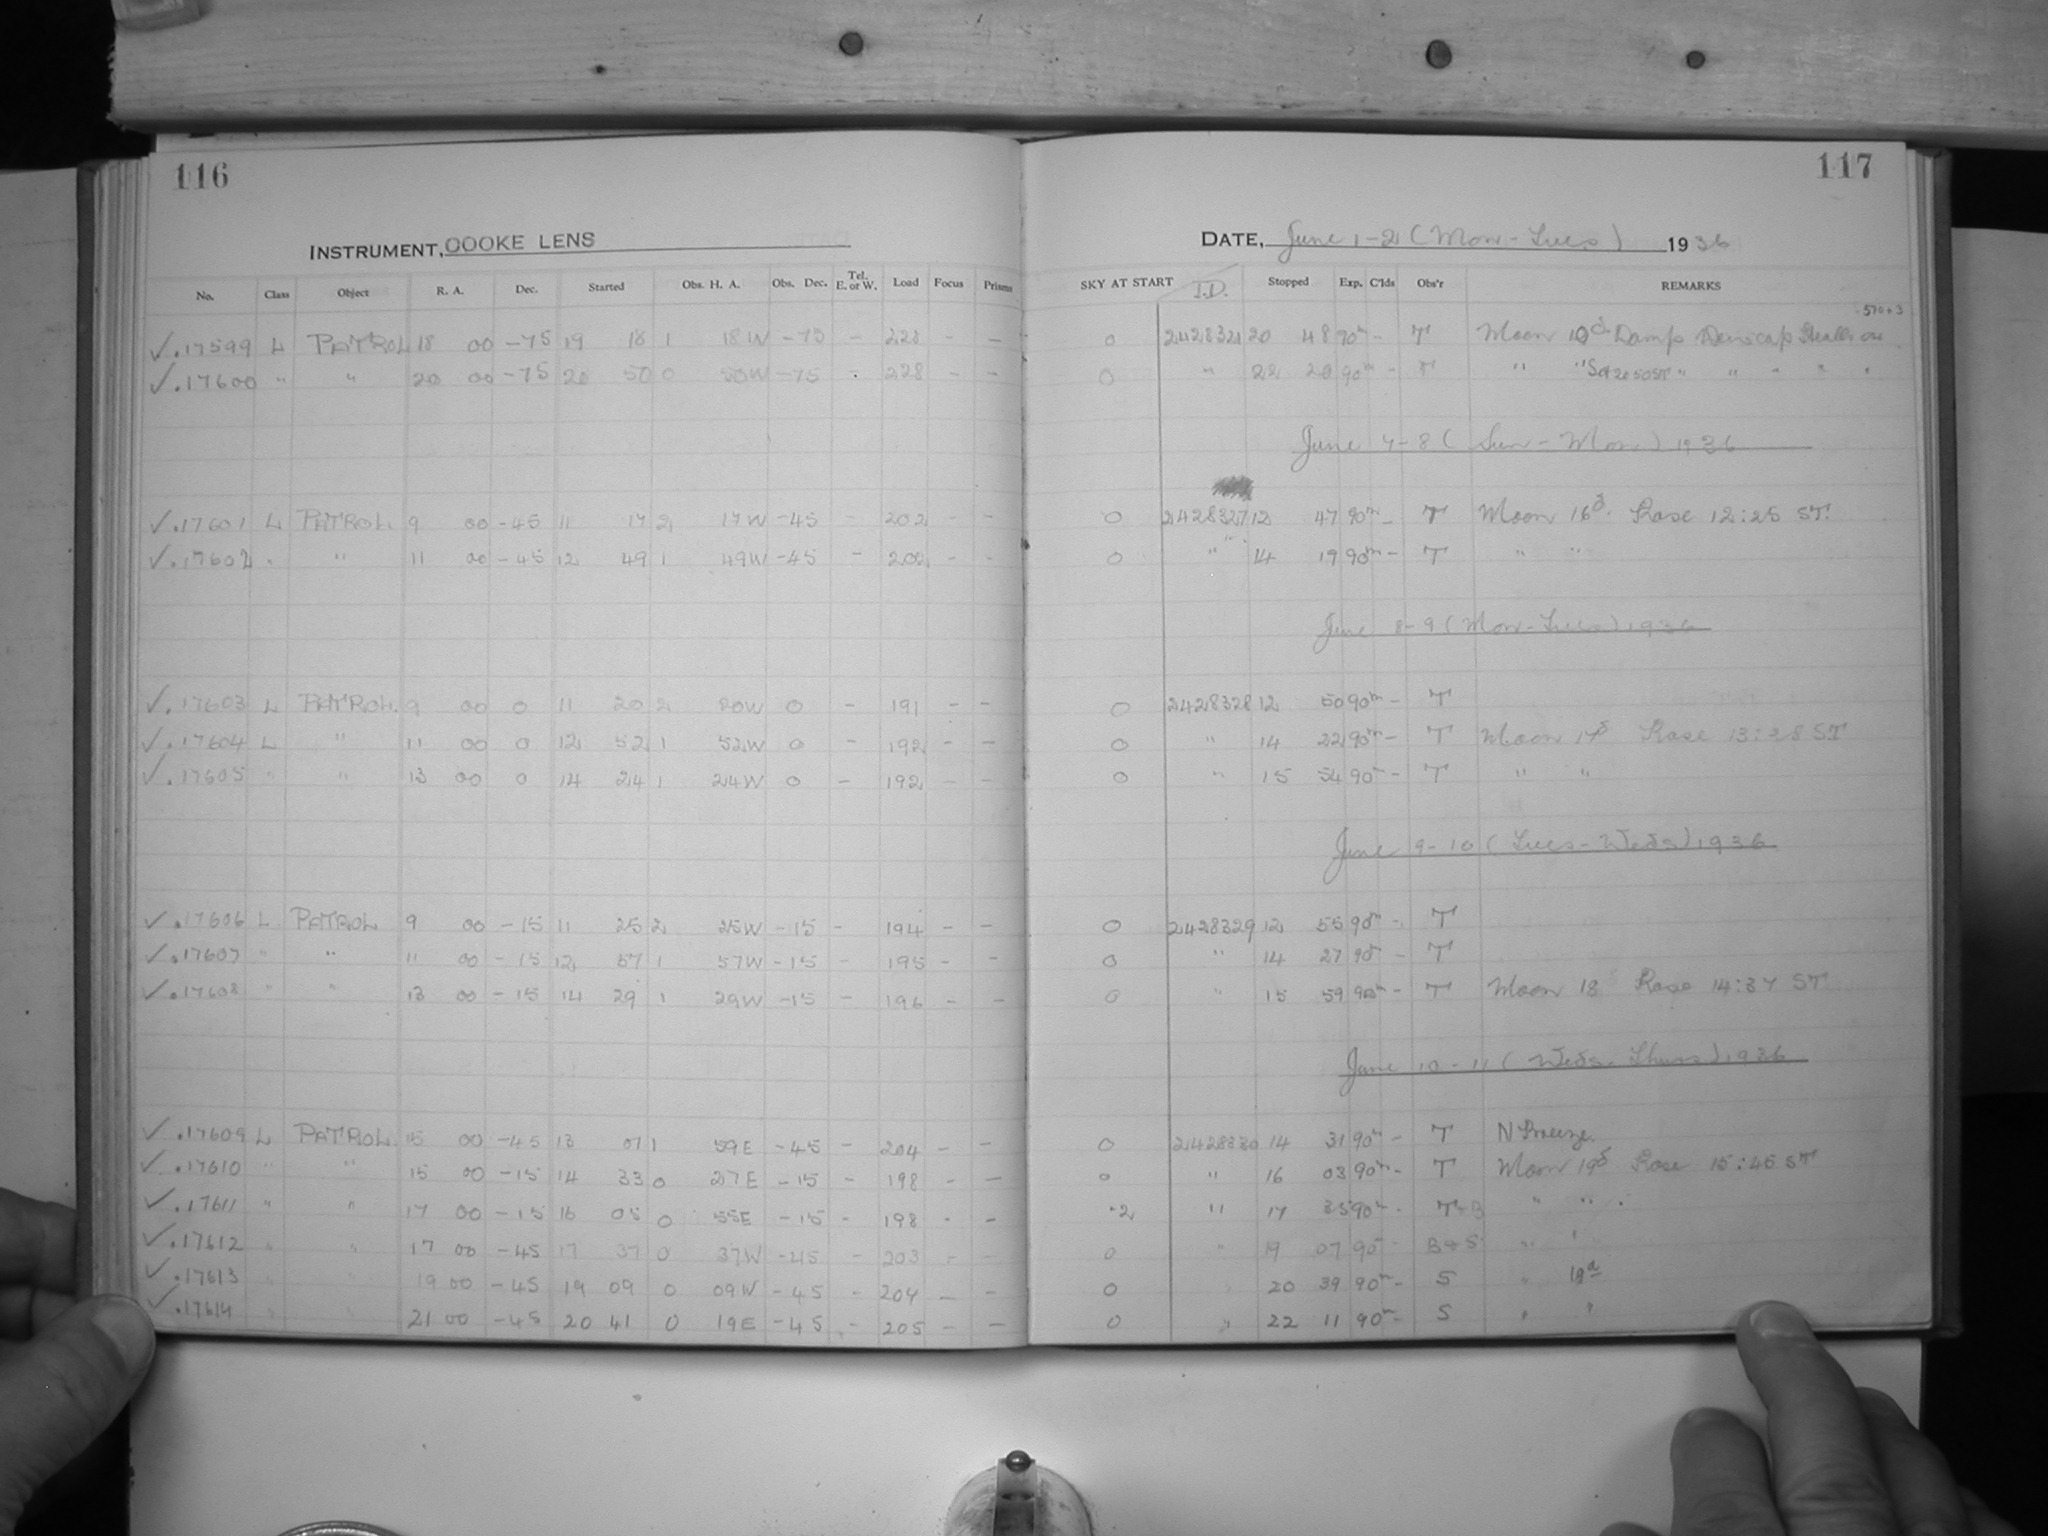 116
INSTRUMENT, COOKE LENS
No. Class Object R. A. Dec. Started Obs. H. A. Obs. Dec. Tel. E. or W. Load Focus Prisms
✓.17599 L PATROL 18 00 -75 19 18 1 18W -75 - 228 - -
✓.17600 " " 20 00 -75 20 50 0 50W -75 - 228 - -
✓.17601 L PATROL 9 00 -45 11 17 2 17W -45 - 202 - -
✓.17602 " " 11 00 -45 12 49 1 49W -45 - 202 - -
✓.17603 L PATROL. 9 00 0 11 20 2 20W 0 - 191 - -
✓.17604 L " 11 00 0 12 52 1 52W 0 - 192 - -
✓.17605 " " 13 00 0 14 24 1 24W 0 - 192 - -
✓.17606 L PATROL 9 00 -15 11 25 2 25W -15 - 194 - -
✓.17607 " " 11 00 -15 12 57 1 57W -15 - 195 - -
✓.17608 " " 13 00 -15 14 29 1 29W -15 - 196 - -
✓.17609 L PATROL. 15 00 -45 13 01 1 59E -45 - 204 - -
✓.17610 " " 15 00 -15 14 33 0 27E -15 - 198 - -
✓.17611 " " 17 00 -15 16 05 0 55E -15 - 198 - -
✓.17612 " " 17 00 -45 17 37 0 37W -45 - 203 - -
✓.17613 " " 19 00 -45 19 09 0 09W -45 - 204 - -
✓.17614 " " 21 00 -45 20 41 0 19E -45 - 205 - -
117
DATE, June 1-2 (Mon-Tues) 1936
SKY AT START J.D. Stopped Exp. C'lds Obs'r REMARKS
57003
0 2428321 20 48 90m - T Moon 12d Damp Dewcap Heater on
0 " 22 20 90m - T " " Set 2050ST " " " " "
June 7-8 (Sun-Mon) 1936
0 2428327 12 47 90m - T Moon 16d. Rose 12:25 ST.
0 " 14 19 90m - T " "
June 8-9 (Mon-Tues) 1936
0 2428328 12 50 90m - T
0 " 14 22 90m - T Moon 17d Rose 13:28 ST
0 " 15 54 90m - T " "
June 9-10 (Tues-Weds) 1936
0 2428329 12 55 90m - T
0 " 14 27 90m - T
0 " 15 59 90m - T Moon 18 Rose 14:37 ST
June 10-11 (Weds-Thurs) 1936
0 2428330 14 31 90m - T N Breeze.
0 " 16 03 90m - T Moon 19d Rose 15:45 ST
-2 " 17 35 90m - T+B " " "
0 " 19 07 90m - B+S " "
0 " 20 39 90m - S " 19d
0 " 22 11 90m - S " "